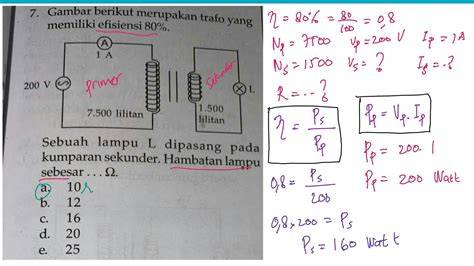 7. Gambar berikut merupakan trafo yang
memiliki efisiensi 80%.
A
1 A
200 V
primer
sekunder
L
7.500 lilitan
1.500
lilitan
Sebuah lampu L dipasang pada
kumparan sekunder. Hambatan lampu
sebesar . . . Ω.
a. 10
b. 12
c. 16
d. 20
e. 25
η = 80% = 80/100 = 0,8
Np = 7500 Vp = 200 V Ip = 1A
Ns = 1500 Vs = ? Is = . ?
R = ... ?
η = Ps/Pp
Pp = Vp . Ip
Pp = 200 . 1
Pp = 200 Watt
0,8 = Ps/200
0,8 x 200 = Ps
Ps = 160 Watt